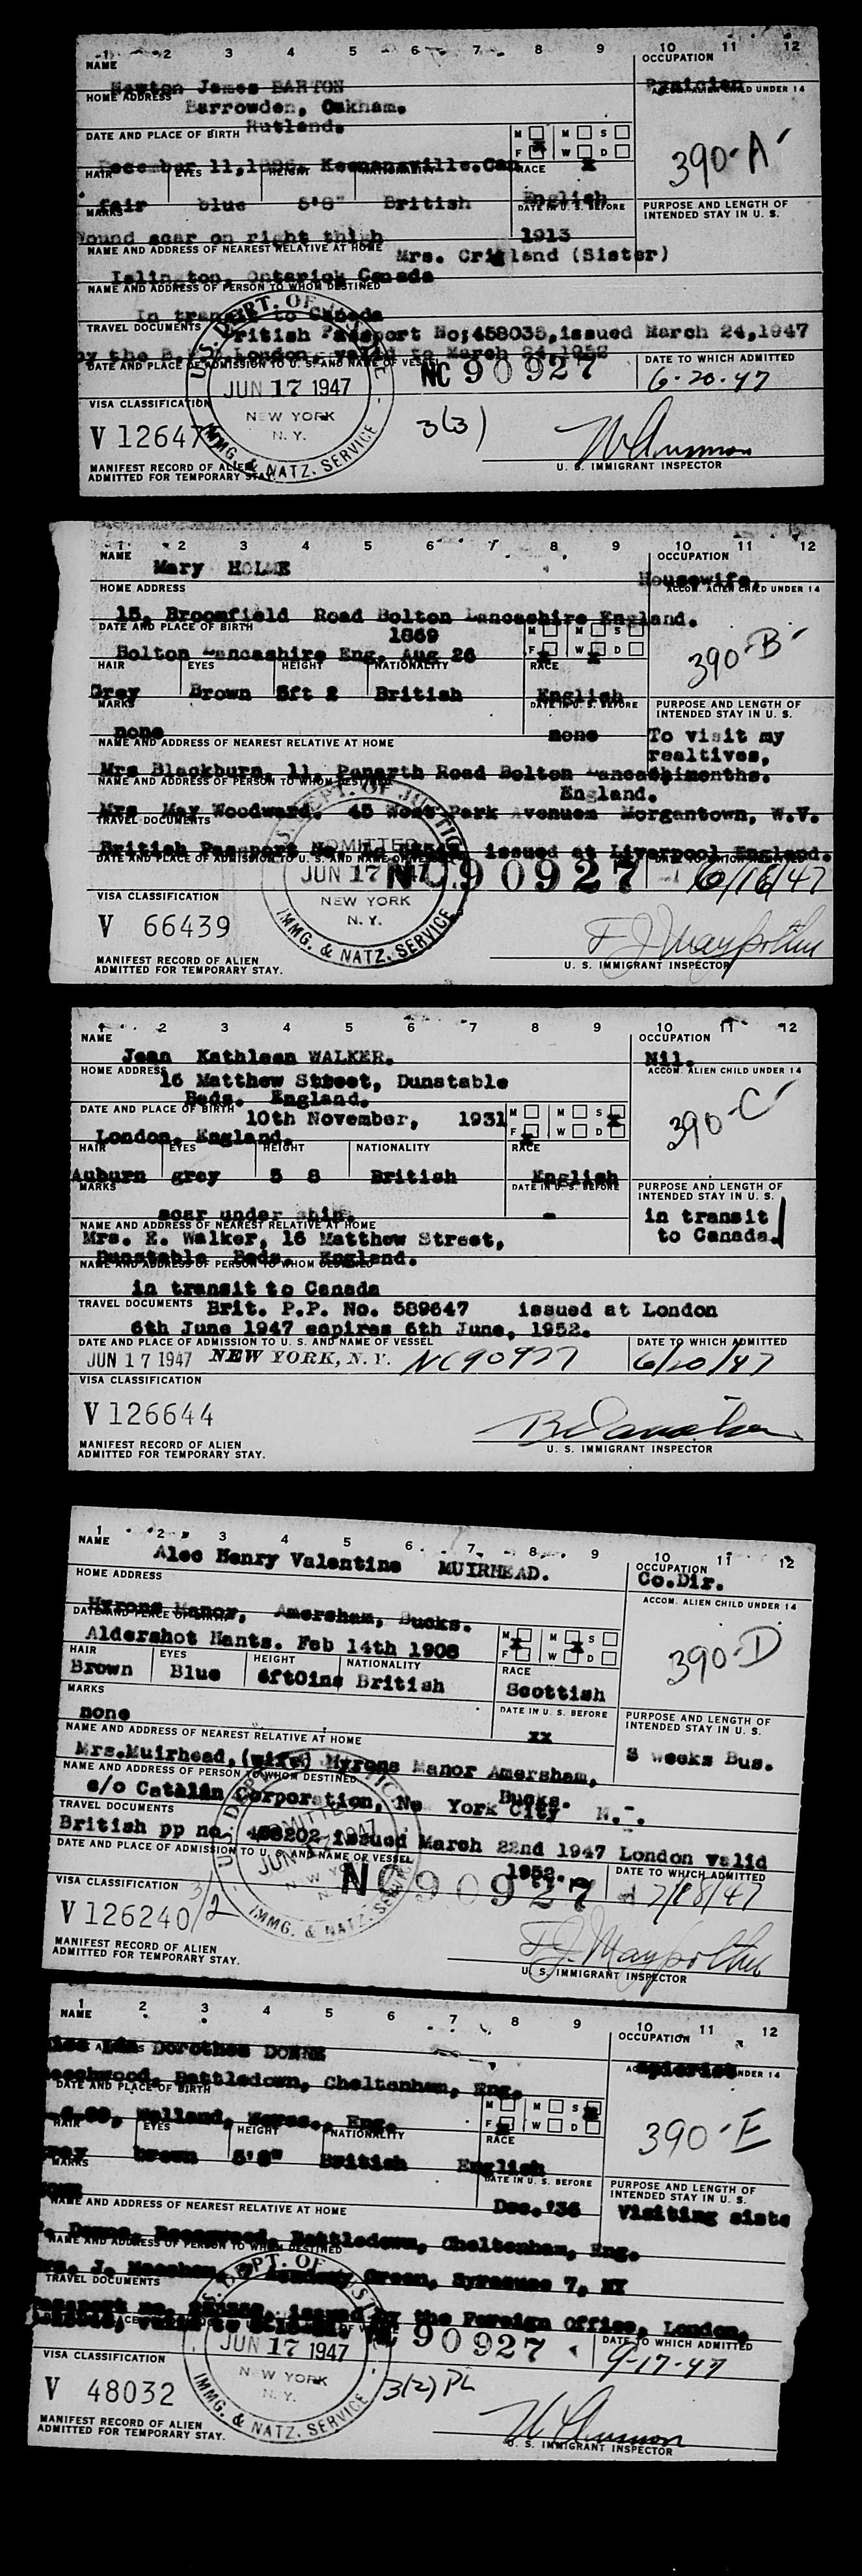 1 2 3 4 5 6 7 8 9 10 11 12
NAME OCCUPATION
Newton James BARTON
HOME ADDRESS ACCOM. ALIEN CHILD UNDER 14
Barrowden, Oakham.
DATE AND PLACE OF BIRTH Rutland. M M S
F W D
390-A
December 11, Keenansville.Can
HAIR EYES HEIGHT NATIONALITY RACE
fair blue 5'8" British English
MARKS DATE IN U. S. BEFORE PURPOSE AND LENGTH OF
INTENDED STAY IN U. S.
Wound scar on right thigh 1913
NAME AND ADDRESS OF NEAREST RELATIVE AT HOME Mrs. (Sister)
Islington, Canada
NAME AND ADDRESS OF PERSON TO WHOM DESTINED
In transit to Canada
TRAVEL DOCUMENTS British Passport No;458038,issued March 24,1947
by the London, valid to March 24,1952
DATE AND PLACE OF ADMISSION TO U. S. AND NAME OF VESSEL NC 90927 DATE TO WHICH ADMITTED
6-20-47
U.S. DEPT. OF JUSTICE
JUN 17 1947
NEW YORK
N. Y.
IMMG. & NATZ. SERVICE
VISA CLASSIFICATION
3(3)
V 12647
MANIFEST RECORD OF ALIEN
ADMITTED FOR TEMPORARY STAY.
U. S. IMMIGRANT INSPECTOR
1 2 3 4 5 6 7 8 9 10 11 12
NAME OCCUPATION
Mary HOLME
HOME ADDRESS Housewife.
ACCOM. ALIEN CHILD UNDER 14
15, Broomfield Road Bolton Lancashire England.
DATE AND PLACE OF BIRTH 1869 M M S
F W D
390-B
Bolton Lancashire Eng. Aug 26
HAIR EYES HEIGHT NATIONALITY RACE
Grey Brown 5ft 2 British English
MARKS DATE IN U. S. BEFORE PURPOSE AND LENGTH OF
INTENDED STAY IN U. S.
none none To visit my
NAME AND ADDRESS OF NEAREST RELATIVE AT HOME realtives,
Mrs Blackburn, 11, Penarth Road Bolton months.
NAME AND ADDRESS OF PERSON TO WHOM DESTINED England.
Mrs May Woodward. 45 West Park Avenue Morgantown, W.V.
TRAVEL DOCUMENTS
British Passport No. issued at Liverpool England.
DATE AND PLACE OF ADMISSION TO U. S. AND NAME OF VESSEL
DEPT. OF JUSTICE
ADMITTED
JUN 17 47
NEW YORK
N. Y.
IMMG. & NATZ. SERVICE
NC 90927
VISA CLASSIFICATION
V 66439
MANIFEST RECORD OF ALIEN
ADMITTED FOR TEMPORARY STAY.
U. S. IMMIGRANT INSPECTOR
1 2 3 4 5 6 7 8 9 10 11 12
NAME OCCUPATION
Jean Kathleen WALKER. Nil.
HOME ADDRESS ACCOM. ALIEN CHILD UNDER 14
16 Matthew Street, Dunstable
Beds. England.
DATE AND PLACE OF BIRTH 10th November, 1931 M M S
F W D
390-C
London, England.
HAIR EYES HEIGHT NATIONALITY RACE
Auburn grey 5 8 British English
MARKS DATE IN U. S. BEFORE PURPOSE AND LENGTH OF
INTENDED STAY IN U. S.
scar under chin. - in transit
to Canada.
NAME AND ADDRESS OF NEAREST RELATIVE AT HOME
Mrs. E. Walker, 16 Matthew Street,
Dunstable Beds. England.
NAME AND ADDRESS OF PERSON TO WHOM DESTINED
in transit to Canada
TRAVEL DOCUMENTS Brit. P.P. No. 589647 issued at London
6th June 1947 expires 6th June, 1952.
DATE AND PLACE OF ADMISSION TO U. S. AND NAME OF VESSEL DATE TO WHICH ADMITTED
JUN 17 1947 NEW YORK, N. Y. NC90927 6/20/47
VISA CLASSIFICATION
V 126644
MANIFEST RECORD OF ALIEN
ADMITTED FOR TEMPORARY STAY.
U. S. IMMIGRANT INSPECTOR
1 2 3 4 5 6 7 8 9 10 11 12
NAME OCCUPATION
Alec Henry Valentine MUIRHEAD. Co.Dir.
HOME ADDRESS ACCOM. ALIEN CHILD UNDER 14
Myrons Manor, Amersham, Bucks.
DATE AND PLACE OF BIRTH M M S
F W D
390-D
Aldershot Hants. Feb 14th 1908
HAIR EYES HEIGHT NATIONALITY RACE
Brown Blue 6ft0ins British Scottish
MARKS DATE IN U. S. BEFORE PURPOSE AND LENGTH OF
INTENDED STAY IN U. S.
none xx
NAME AND ADDRESS OF NEAREST RELATIVE AT HOME weeks Bus.
Mrs.Muirhead,(wife) Myrons Manor Amersham,
NAME AND ADDRESS OF PERSON TO WHOM DESTINED Bucks.
c/o Catalin Corporation, New York City N.Y.
TRAVEL DOCUMENTS
British pp no. issued March 22nd 1947 London valid
1952.
DATE AND PLACE OF ADMISSION TO U. S. AND NAME OF VESSEL DATE TO WHICH ADMITTED
NC 90927 7/18/47
IMMG. & NATZ. SERVICE
VISA CLASSIFICATION
3/2
V 126240
MANIFEST RECORD OF ALIEN
ADMITTED FOR TEMPORARY STAY.
U. S. IMMIGRANT INSPECTOR
1 2 3 4 5 6 7 8 9 10 11 12
NAME OCCUPATION
Dorothea DONNE
Battledown, Cheltenham, Eng.
DATE AND PLACE OF BIRTH M M S
F W D
390-E
Welland, Worcs., Eng.
HAIR EYES HEIGHT NATIONALITY RACE
brown 5'8" British English
MARKS DATE IN U. S. BEFORE PURPOSE AND LENGTH OF
INTENDED STAY IN U. S.
Dec.'36 Visiting siste
NAME AND ADDRESS OF NEAREST RELATIVE AT HOME
Donne, Battledown, Cheltenham, Eng.
NAME AND ADDRESS OF PERSON TO WHOM DESTINED
J. Green, Syracuse 7, NY
TRAVEL DOCUMENTS
Passport no. issued by the Foreign Office, London,
90927 DATE TO WHICH ADMITTED
9-17-47
DEPT. OF JUSTICE
JUN 17 1947
NEW YORK
N. Y.
IMMG. & NATZ. SERVICE
VISA CLASSIFICATION
3(2) PL
V 48032
MANIFEST RECORD OF ALIEN
ADMITTED FOR TEMPORARY STAY.
U. S. IMMIGRANT INSPECTOR